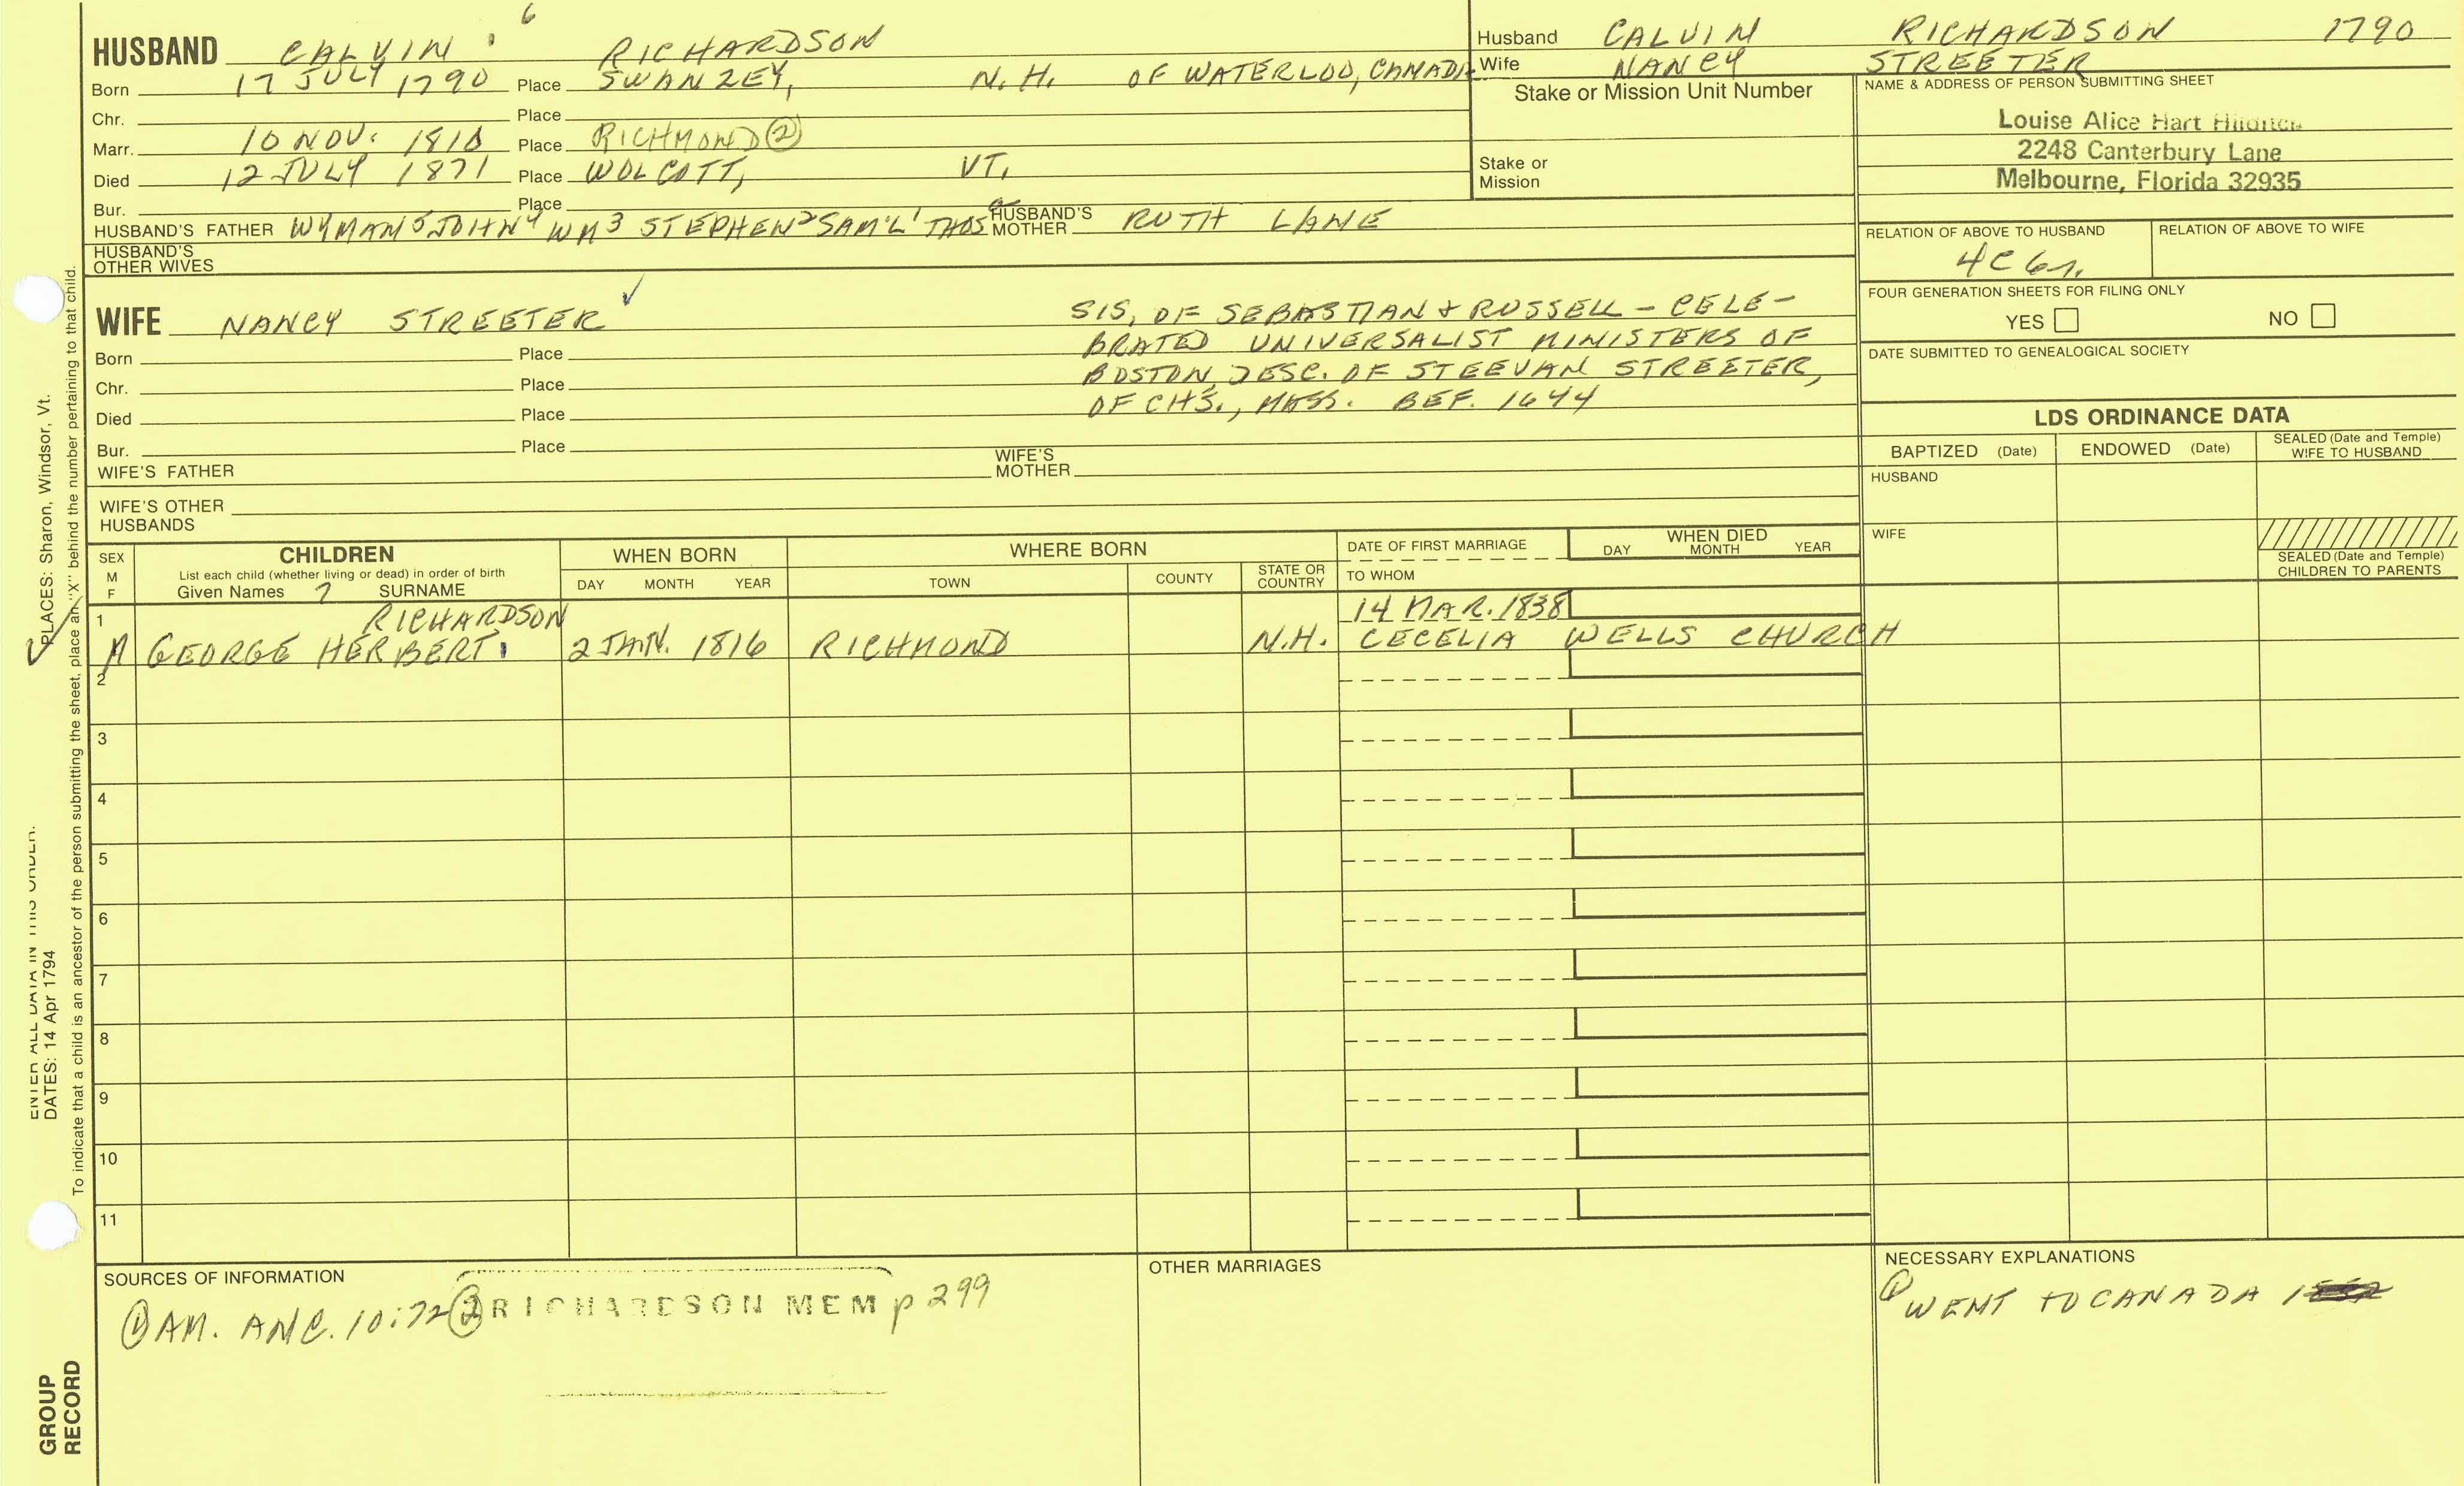 6
HUSBAND CALVIN RICHARDSON
Born 17 JULY 1790 Place SWANZEY, N.H. OF WATERLOO, CANADA
Chr. Place
Marr. 10 NOV. 1810 Place RICHMOND ②
Died 12 JULY 1871 Place WOLCOTT, VT.
Bur. Place
HUSBAND'S FATHER WYMAN 5 JOHN 4 WM 3 STEPHEN 2 SAM'L 1 THOS HUSBAND'S MOTHER RUTH LANE
HUSBAND'S
OTHER WIVES
Husband CALVIN RICHARDSON 1790
Wife NANCY STREETER
Stake or Mission Unit Number
Stake or
Mission
NAME & ADDRESS OF PERSON SUBMITTING SHEET
Louise Alice Hart
2248 Canterbury Lane
Melbourne, Florida 32935
RELATION OF ABOVE TO HUSBAND RELATION OF ABOVE TO WIFE
4C 6r.
FOUR GENERATION SHEETS FOR FILING ONLY
YES NO
DATE SUBMITTED TO GENEALOGICAL SOCIETY
WIFE NANCY STREETER ✓
SIS, OF SEBASTIAN & RUSSELL - CELE-
BRATED UNIVERSALIST MINISTERS OF
BOSTON, DESC. OF STEEVAN STREETER,
OF CHS., MASS. BEF. 1644
Born Place
Chr. Place
Died Place
Bur. Place
WIFE'S FATHER WIFE'S MOTHER
WIFE'S OTHER
HUSBANDS
LDS ORDINANCE DATA
BAPTIZED (Date) ENDOWED (Date) SEALED (Date and Temple) WIFE TO HUSBAND
HUSBAND
WIFE
SEALED (Date and Temple)
CHILDREN TO PARENTS
SEX M F
CHILDREN
List each child (whether living or dead) in order of birth
Given Names 7 SURNAME
WHEN BORN
DAY MONTH YEAR
WHERE BORN
TOWN COUNTY STATE OR COUNTRY
DATE OF FIRST MARRIAGE
TO WHOM
WHEN DIED
DAY MONTH YEAR
1 RICHARDSON 14 MAR. 1838
M GEORGE HERBERT 2 JAN. 1816 RICHMOND N.H. CECELIA WELLS CHURCH
2
3
4
5
6
7
8
9
10
11
SOURCES OF INFORMATION
① AM. ANC. 10:72 ② RICHARDSON MEM p 299
OTHER MARRIAGES
NECESSARY EXPLANATIONS
① WENT TO CANADA
ENTER ALL DATA IN THIS ORDER:
DATES: 14 Apr 1794
PLACES: Sharon, Windsor, Vt.
To indicate that a child is an ancestor of the person submitting the sheet, place an "X" behind the number pertaining to that child.
GROUP
RECORD